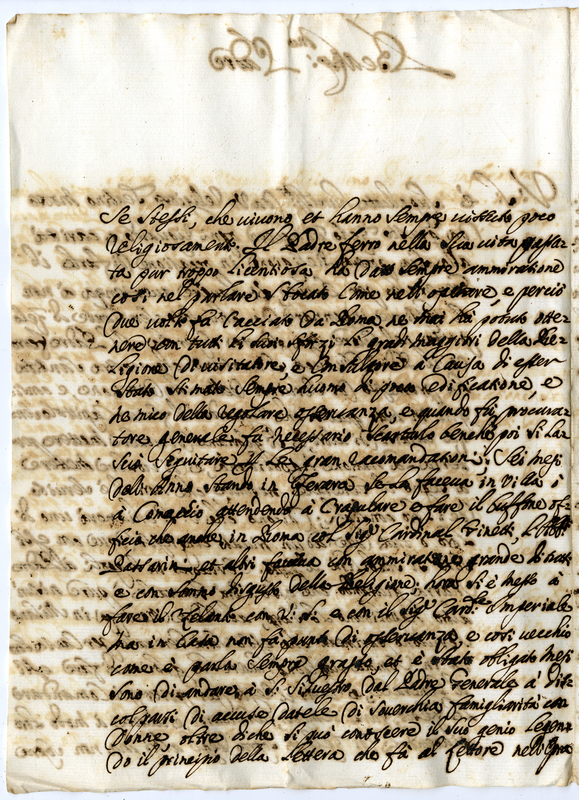 se stessi, che vivono et hanno sempre vissuto poco
religiosamente. Il Padre ferro nella sua vita passa-
ta pur troppo licentiosa ha dato sempre ammiratione
così nel parlare sboccato come nell'operare, e perciò
due volte fu cacciato da Roma ne mai ha potuto otte-
nere con tutti li suoi sforzi li gradi maggiori della Re-
ligione di visitatore, e Consultore à causa di esser
stato stimato sempre huomo di poca edificatione, e
nemico della regolare osservanza, e quando fu procura-
tore generale fu necessario benche poi si las-
seguitare gran racomandationi. Sei mesi
dell'anno stando in ferara se la faceva in villa i
à Comacchio attendendo à Crapulare e fare il buffone of-
ficio che anche in Roma col Sig.r Cardinal Ginetti,
et altri faceva con ammiratione grande di tutti
e con sommo disgusto della Religione, hora si è messo à
fare il Zelante con V. S. e con il Sig.r Card.le Imperiale
ma in Casa non fà punto di osservanza e così vecchio
come è parla sempre grasso et è stato obligato mesi
sono di andare à S. Silvestro dal Padre Generale à dis-
colparsi di accuse dateli di soverchia famigliarità con
Donne oltre di che si può conoscere il suo genio legen-
do il principio della lettera che fà al lettore nell'Opra